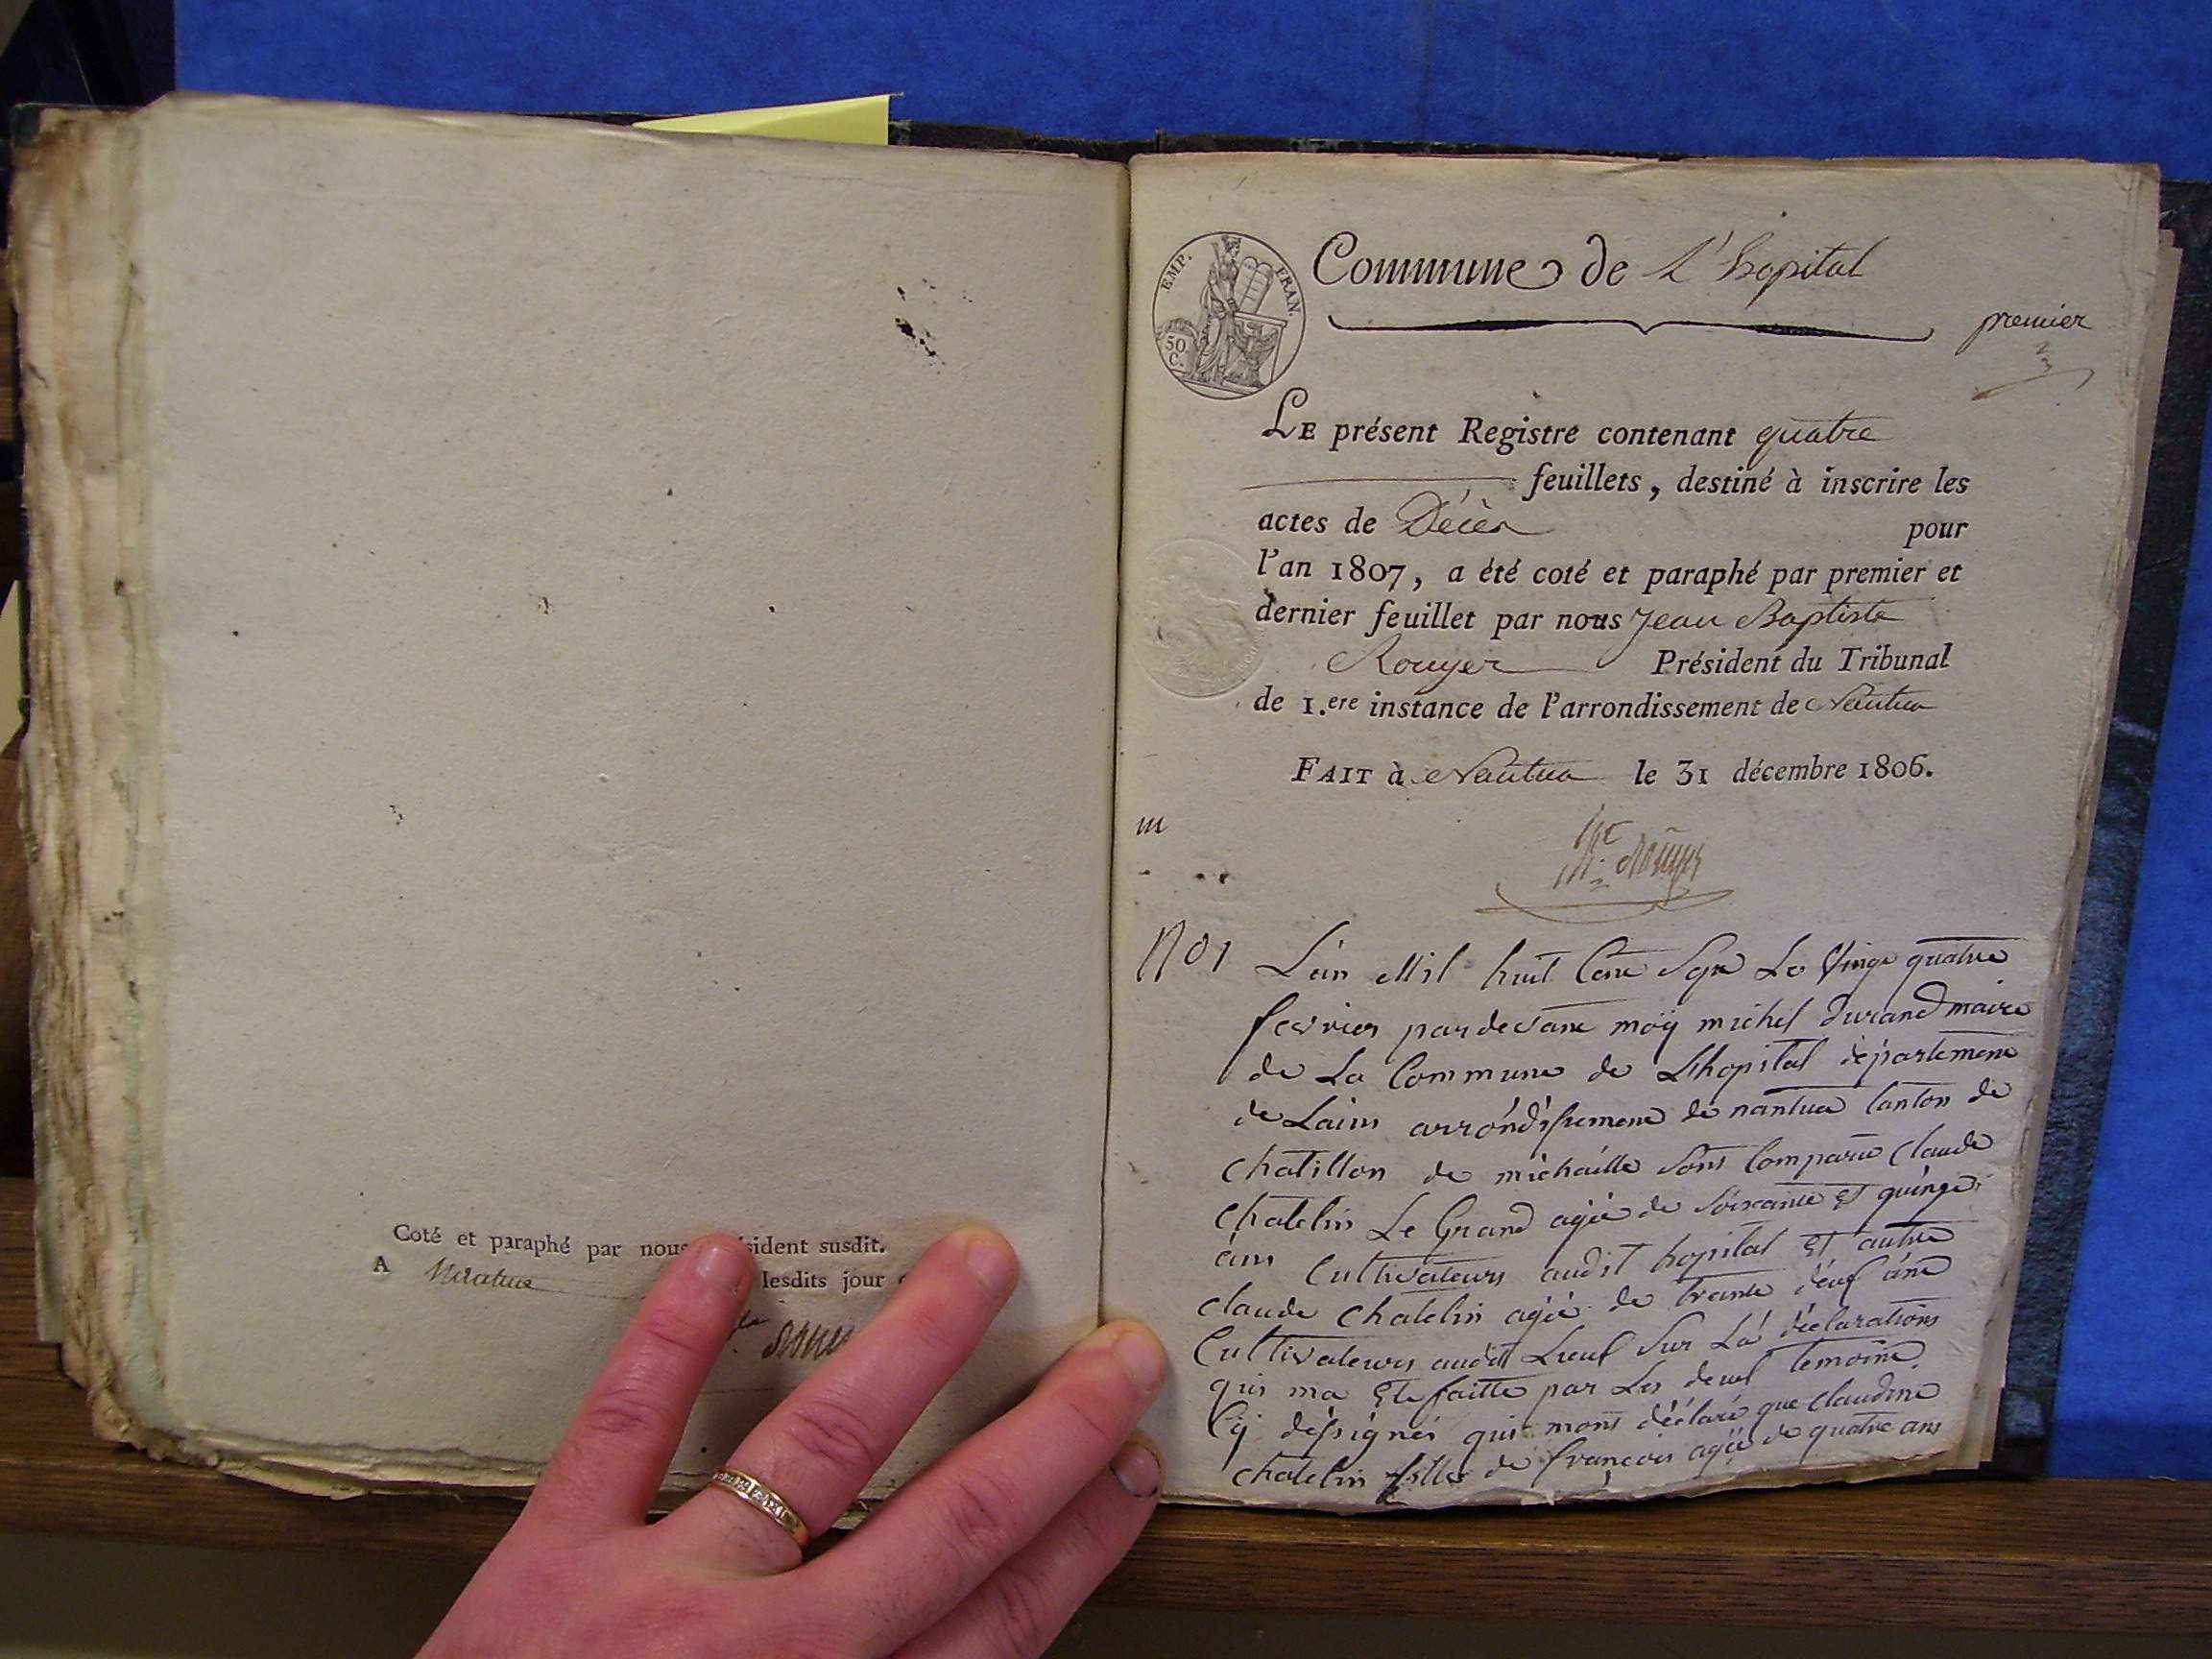 Coté et paraphé par nous sident susdit.
A Nantua lesdits jour
EMP. FRAN.
50
C.
Commune de L'hopital
premier
LE présent Registre contenant quatre
feuillets, destiné à inscrire les
actes de Décès pour
l'an 1807, a été coté et paraphé par premier et
dernier feuillet par nous Jean Baptiste
Rouyer Président du Tribunal
de 1.ere instance de l'arrondissement de Nantua
FAIT à Nantua le 31 décembre 1806.
Rouyer
No 1 L'an Mil huit Cent Sept Le Vingt quatre
fevrier pardevant moÿ michel durand maire
de La Commune de Lhopital département
de Lains arrondissement de nantua Canton de
chatillon de michaille Sont Comparu Claude
chatelin Le Grand agée de Soixante et quinze
ans Cultivateurs audit hopital Et autre
claude chatelin agée de trante deuf ans
Cultivateurs audit Lieuf Sur La déclarations
qui ma Ete faitte par Les deuf temoins
Cÿ désignés qui mons déclaré que Claudine
chatelin fille de françois agée de quatre ans